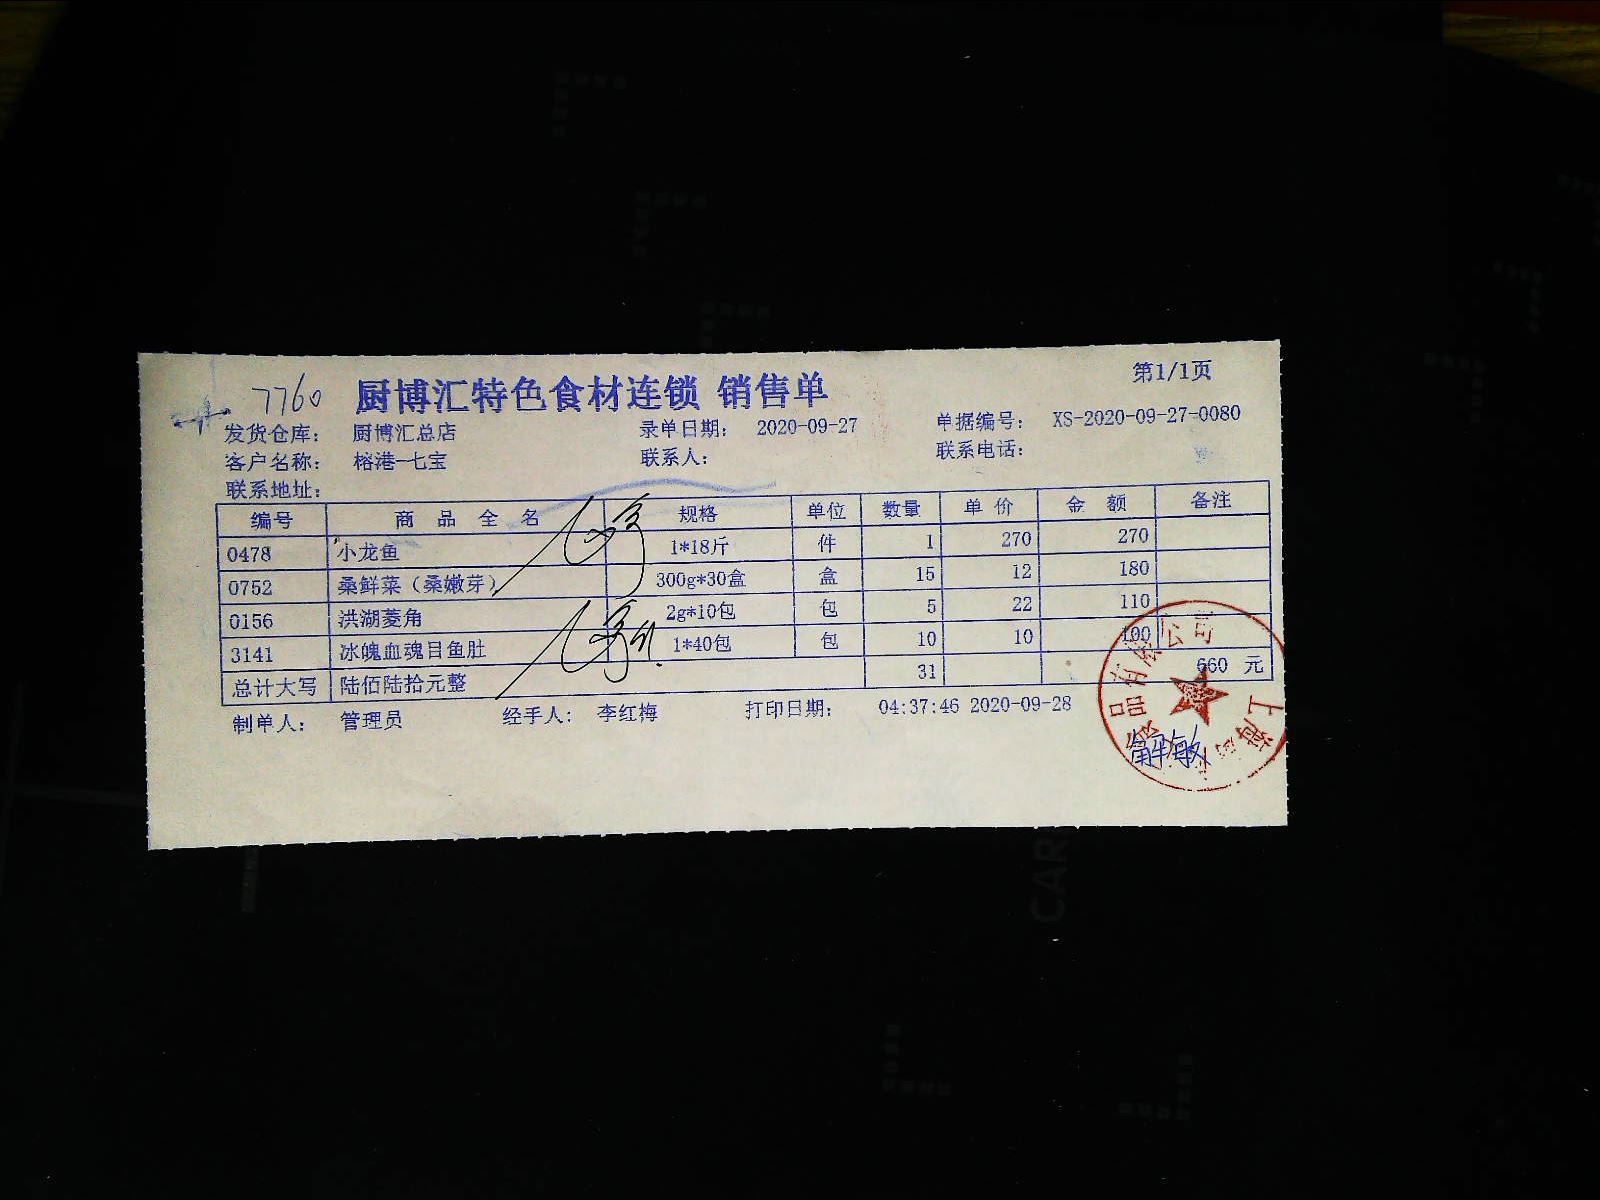 第1/1页
7760 厨博汇特色食材连锁 销售单
发货仓库： 厨博汇总店 录单日期： 2020-09-27 单据编号： XS-2020-09-27-0080
客户名称： 榕港-七宝 联系人： 联系电话：
联系地址：
编号 商品全名 规格 单位 数量 单价 金额 备注
0478 小龙鱼 1*18斤 件 1 270 270
0752 桑鲜菜（桑嫩芽） 300g*30盒 盒 15 12 180
0156 洪湖菱角 2g*10包 包 5 22 110
3141 冰魄血魂目鱼肚 1*40包 包 10 10 100
总计大写 陆佰陆拾元整 31 660 元
制单人： 管理员 经手人： 李红梅 打印日期： 04:37:46 2020-09-28
解敏
上海 品有限公司
CAR